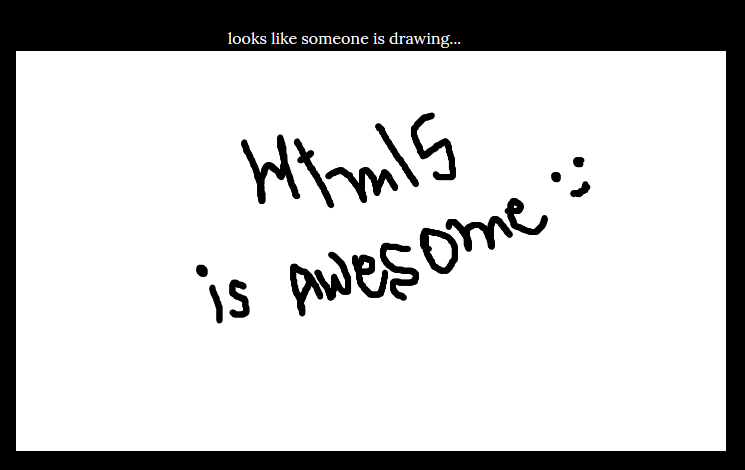 looks like someone is drawing...
Html5
is awesome :)